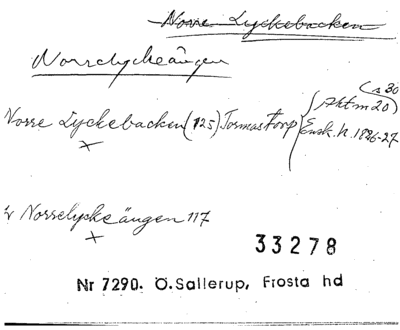 Norre Lyckebacken
Norrelyckeängen
Ca 30
(Akt m 20)
Norre Lyckebacken (125) Tormastorp Ensk. h. 1826-27
x
Norrelyckeängen 117
x
33278
Nr 7290. Ö.Sallerup, Frosta hd